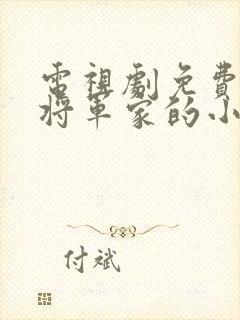 電視劇免費
將軍家的小
付斌